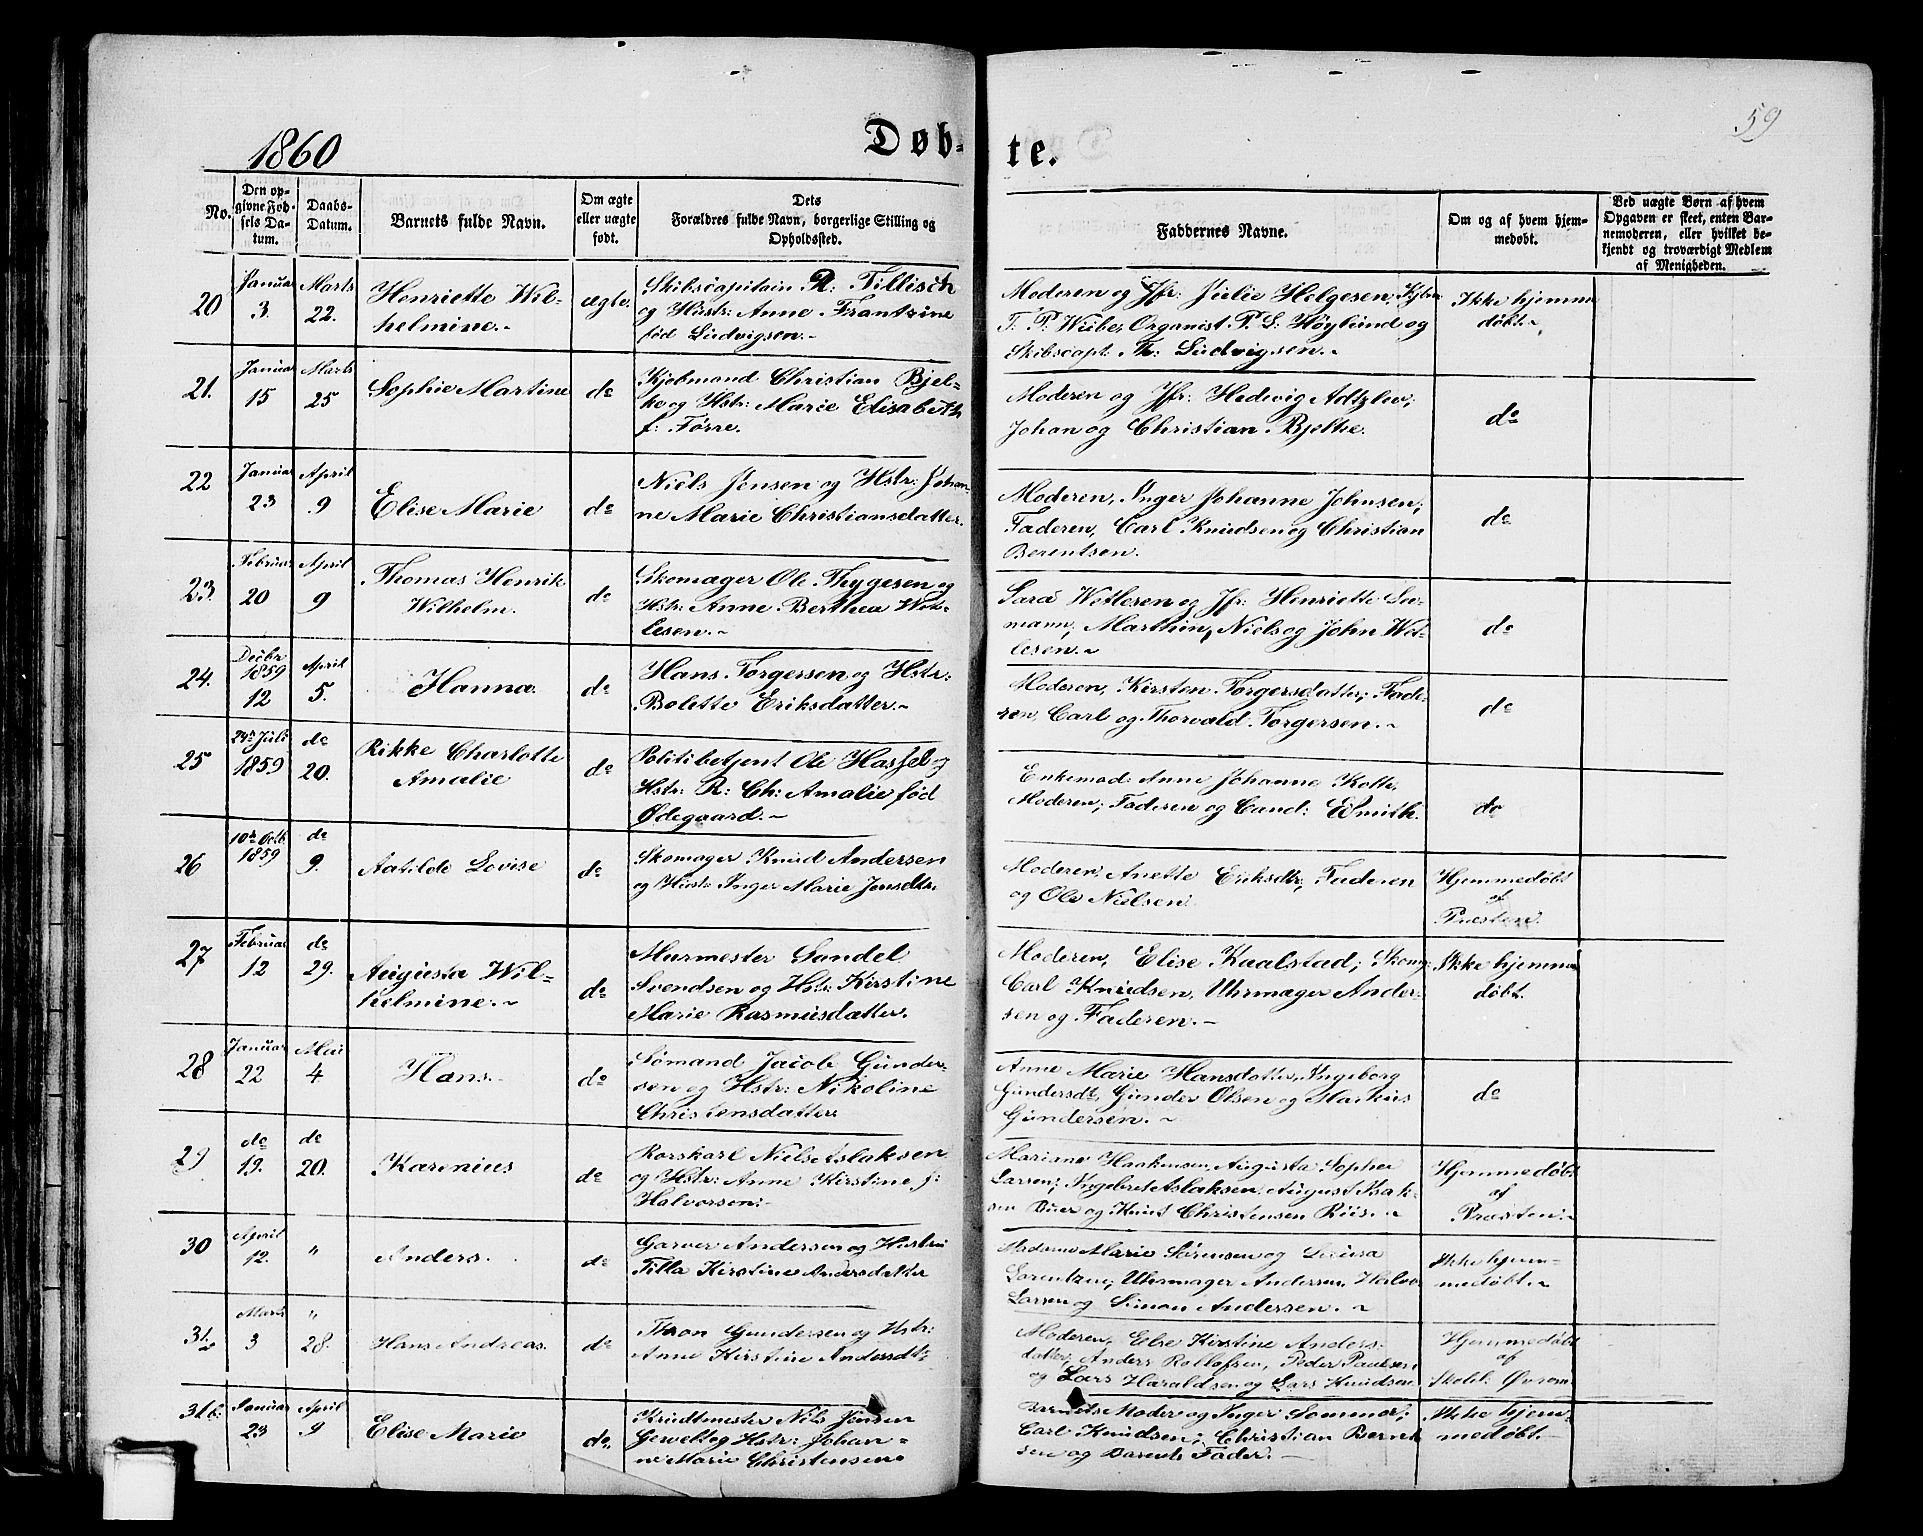 59
1860
Døb-
te.
No.
Den op-
givne Fød-
sels Da-
tum.
Daabs-
Datum.
Barnets fulde Navn.
Om ægte
eller uægte
født.
Dets
Forældres fulde Navn, borgerlige Stilling og
Opholdssted.
Faddernes Navne.
Om og af hvem hjem-
medøbt.
Ved uægte Børn af hvem
Opgaven er skeet, enten Bar-
nemoderen, eller hvilket be-
kjendt og troværdigt Medlem
af Menigheden.
20
Januar
3.
Marts
22.
Henriette Wil-
helmine.
ægte.
Skibscapitain R: Tillisch
og Hustr: Anne Frantzine
fød Ludvigsen.
Moderen og Jfr: Julie Helgesen, Kjbm
T. P. Weibe, Organist P. L: Høylund og
Skibscapt. Th: Ludvigsen.
Ikke hjemme
døbt.
21.
Januar
15
Marts
25
Sophie Martine
do
Kjøbmand Christian Bjel-
ke og Hstr: Marie Elisabeth
f: Førre.
Moderen og Jfr: Hedevig Adtzlev;
Johan og Christian Bjelke.
do
22
Januar
23
April
9
Elise Marie
do
Niels Jensen og Hstr: Johan-
ne Marie Christiansdatter.
Moderen, Inger Johanne Johnsen;
Faderen, Carl Knudsen og Christian
Berentsen.
do
23.
Februar
20
April
9
Thomas Henrik
Wilhelm.
do
Skomager Ole Thygesen og
Hstr: Anne Berthea Wet-
lesen.
Sara Wetlesen og Jfr: Henriette See-
mann; Marthin, Niels og John Wet-
lesen.
do
24.
Decbr
1859
12
April
5.
Hanna.
do
Hans Torgersen og Hstr:
Bolette Eriksdatter.
Moderen, Kirsten Torgersdatter; Fade-
ren, Carl og Thorvald Torgersen.
do
25
24de Juli
1859
do
20.
Rikke Charlotte
Amalie
do
Politibetjent Ole Hassel og
Hstr: R: Ch: Amalie fød
Ødegaard.
Enkemad: Anne Johanne Kolle,
Moderen; Faderen og Cand: E Smith.
do
26
10de Octb.
1859
do
9.
Matilde Lovise
do
Skomager Knud Andersen
og Hustr Inger Marie Jensdtr.
Moderen, Anette Eriksdtr; Faderen
og Ole Nielsen.
Hjemmedøbt
af
Præsten.
27
Februar
12
do
29.
Augusta Wil-
helmine.
do
Murmester Sandel
Svendsen og Hstr: Kirstine
Marie Rasmusdatter.
Moderen, Elise Kaalstad; Skomg:
Carl Knudsen, Uhrmager Ander-
sen og Faderen.
Ikke hjemme
døbt.
28
Januar
22
Mai
4
Hans.
do
Sømand Jacob Gunder-
sen og Hstr: Nikoline
Christensdatter
Anne Marie Hansdatter, Ingeborg
Gundersdt, Gunder Olsen og Markus
Gundersen.
do
29
do
19.
do
20.
Karenius
do
Rorskarl Niels Aslaksen
og Hstr: Anne Kirstine f:
Halvorsen.
Mariane Haakensen, Augusta Sophie
Larsen; Ingebret Aslaksen, August Isak-
sen Buer og Knut Christensen Riis.
Hjemmedøbt
af
Præsten.
30
April
12.
"
Anders.
do
Garver Andersen og Hustru
Tilla Kirstine Andersdatter
Madame Marie Sørensen og Lovisa
Lorentzen; Uhrmager Andersen, Halvor
Larsen og Simon Andersen.
Ikke hjem-
medøbt.
31.
Marts
3
"
28.
Hans Andreas.
do
Thron Gundersen og Hstr:
Anne Kirstine Andersdt
Moderen, Else Kirstine Anders-
datter, Anders Rollefsen, Peder Paulsen
og Lars Haraldsen og Lars Knudsen
Hjemmedøbt
af
Skoll: Øvrom
31b.
Januar
23
April
9
Elise Marie
do.
Krudtmester Nils Jensen
Gevelt og Hstr: Johan-
ne Marie Christensen
Barnets Moder og Inger Sommer;
Carl Knudsen; Christian Bernt-
sen og Barnets Fader.
Ikke hjem-
medøbt.